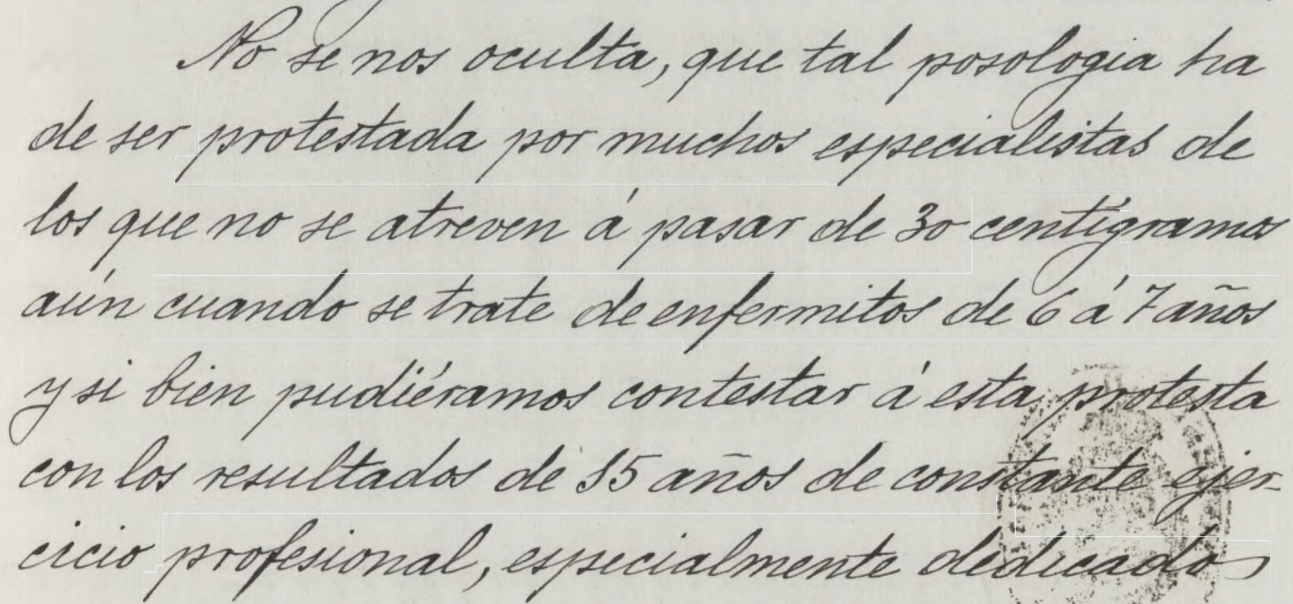 No se nos oculta, que tal posologia ha
de ser protestada por muchos especialistas de
los que no se atreven á pasar de 30 centígramos
aún cuando se trate de enfermitos de 6 á 7 años
y si bien pudiéramos contestar á esta protesta
con los resultados de 15 años de constante ejer-
cicio profesional, especialmente dedicados